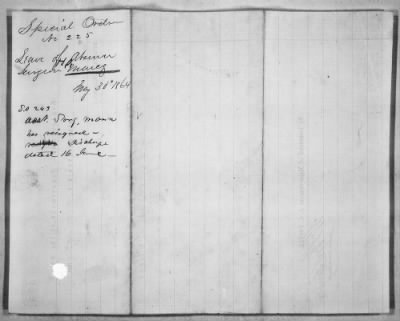 Special Order
No 225
Leave of Absence
Surgeon
May 30" 1864
S.O 243
asst. Surg,
has resigned
Discharge
dated 16 June